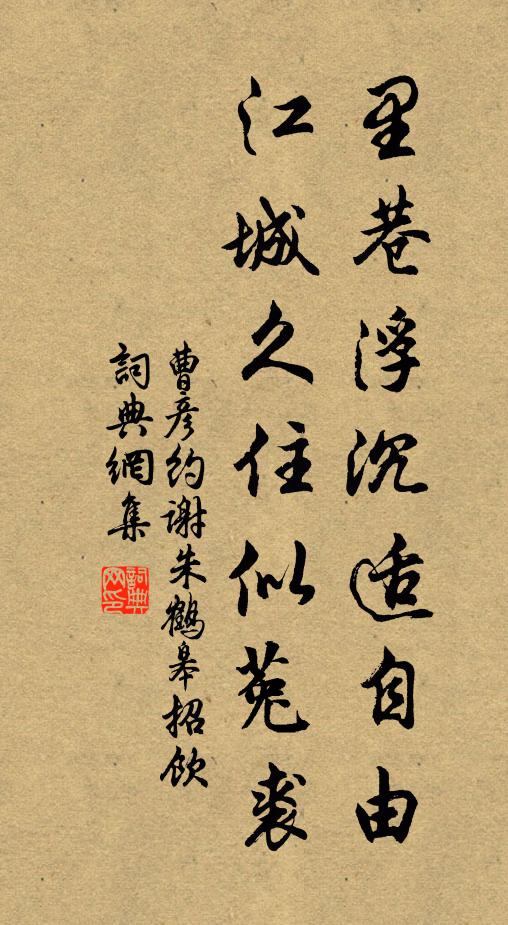 里巷浮沉适自由
江城久住似菟裘
曹彦约谢朱鶴皋招飲
詞典網集
詞典網印